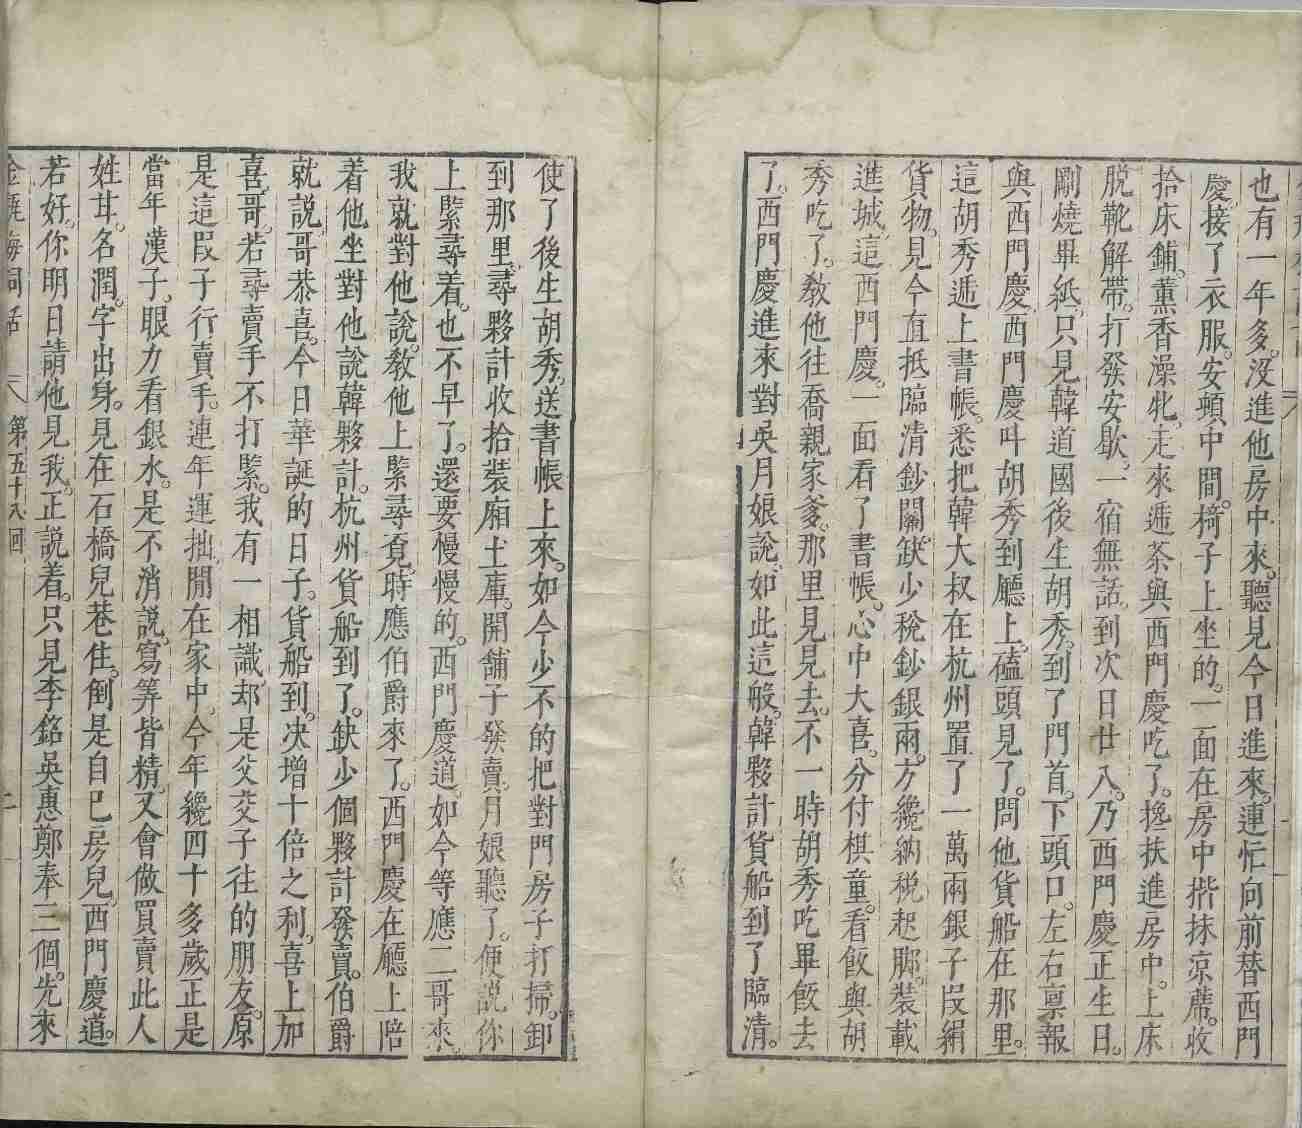 也有一年多。沒進他房中來。聽見今日進來。連忙向前替西門
慶。接了衣服。安頓中間。椅子上坐的。一面在房中揩抹凉蓆。收
拾床鋪。薰香澡牝。走來遞茶與西門慶吃了。攙扶進房中。上床
脫靴解帶。打發安歇。一宿無話。到次日廿八。乃西門慶正生日。
剛燒畢紙。只見韓道國後生胡秀。到了門首。下頭口。左右禀報
與西門慶。西門慶叫胡秀到廳上。磕頭見了。問他貨船在那里。
這胡秀遞上書帳。悉把韓大叔在杭州置了一萬兩銀子叚絹
貨物。見今直抵臨清鈔關。缺少稅鈔銀兩。方纔納稅起脚。裝載
進城。這西門慶。一面看了書帳。心中大喜。分付棋童。看飯與胡
秀吃了。敎他往喬親家爹。那里見見去。不一時胡秀吃畢飯去
了。西門慶進來對吳月娘說。如此這般。韓夥計貨船到了臨清。
使了後生胡秀。送書帳上來。如今少不的把對門房子打掃。卸
到那里。尋夥計收拾裝廂土庫。開鋪子發賣。月娘聽了。便說你
上緊尋着。也不早了。還要慢慢的。西門慶道。如今等應二哥來。
我就對他說。敎他上緊尋覔。時應伯爵來了。西門慶在廳上陪
着他坐。對他說韓夥計。杭州貨船到了。缺少個夥計發賣。伯爵
就說。哥恭喜。今日華誕的日子。貨船到。决增十倍之利。喜上加
喜。哥。若尋賣手不打緊。我有一相識。却是父交子往的朋友。原
是這叚子行賣手。連年運拙。閒在家中。今年纔四十多歲。正是
當年漢子。眼力看銀水。是不消說。寫筭皆精。又會做買賣。此人
姓甘。名潤。字出身。見在石橋兒巷住。倒是自巳房兒。西門慶道。
若好。你明日請他見我。正說着。只見李銘吳惠鄭奉三個。先來
金瓶梅詞話 八 第五十八囘 二